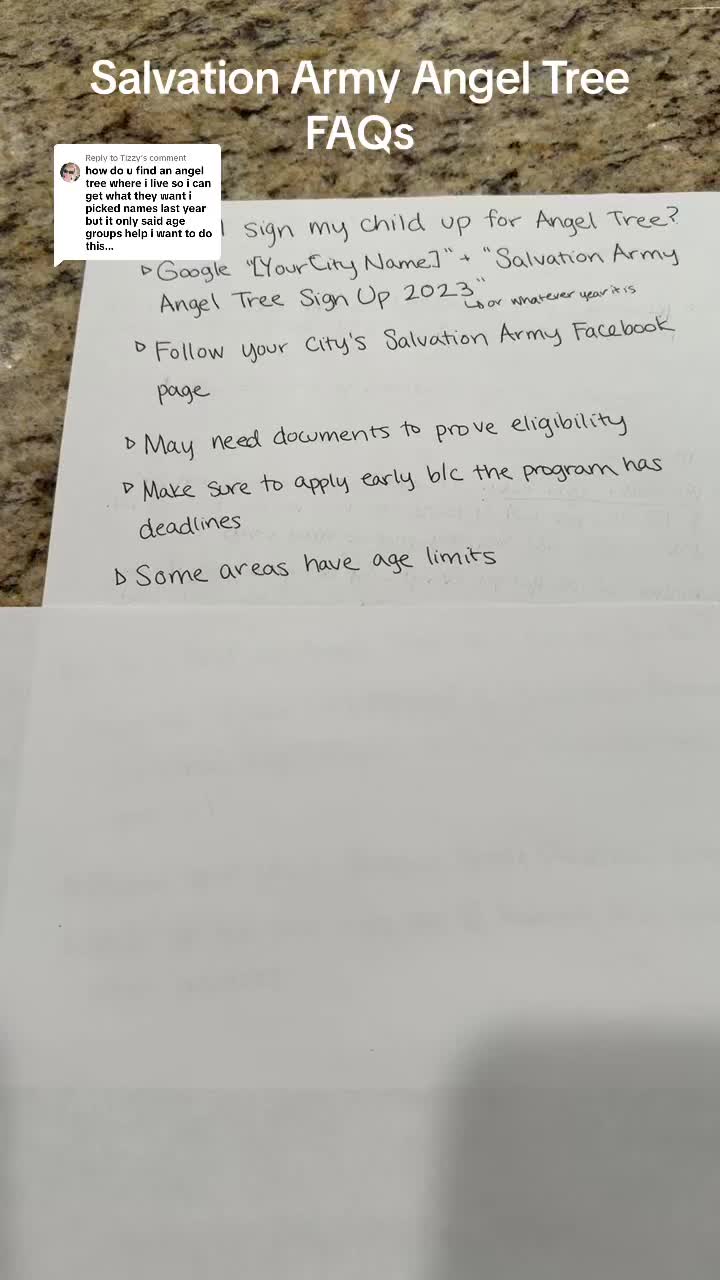 Salvation Army Angel Tree
FAQs
Reply to Tizzy's comment
how do u find an angel
tree where i live so i can
get what they want i
picked names last year
but it only said age
groups help i want to do
this...
I sign my child up for Angel Tree?
▷ Google "[Your City Name]" + "Salvation Army
Angel Tree Sign Up 2023"
↳ or whatever year it is
▷ Follow your city's Salvation Army Facebook
page
▷ May need documents to prove eligibility
▷ Make sure to apply early b/c the program has
deadlines
▷ Some areas have age limits